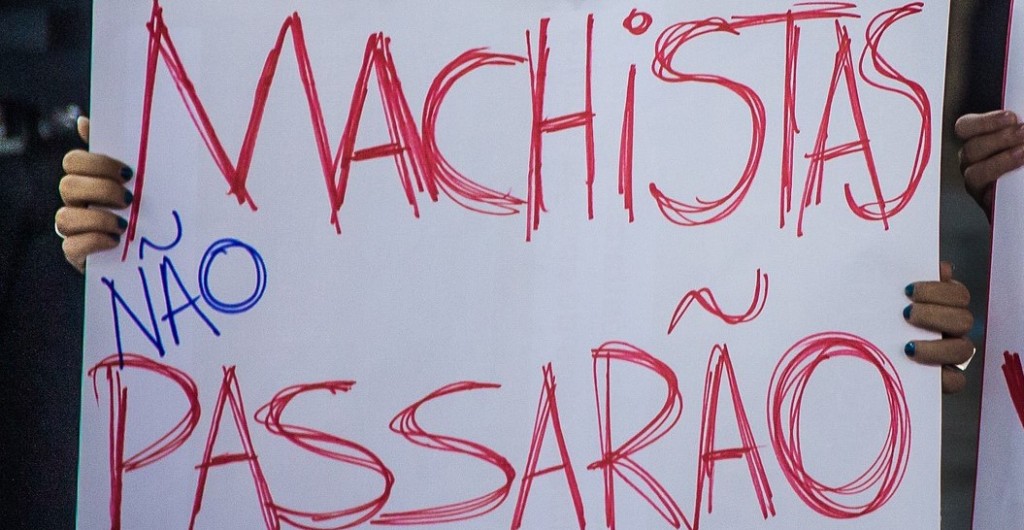 MACHiSTAS
NÃO
PASSARÃO